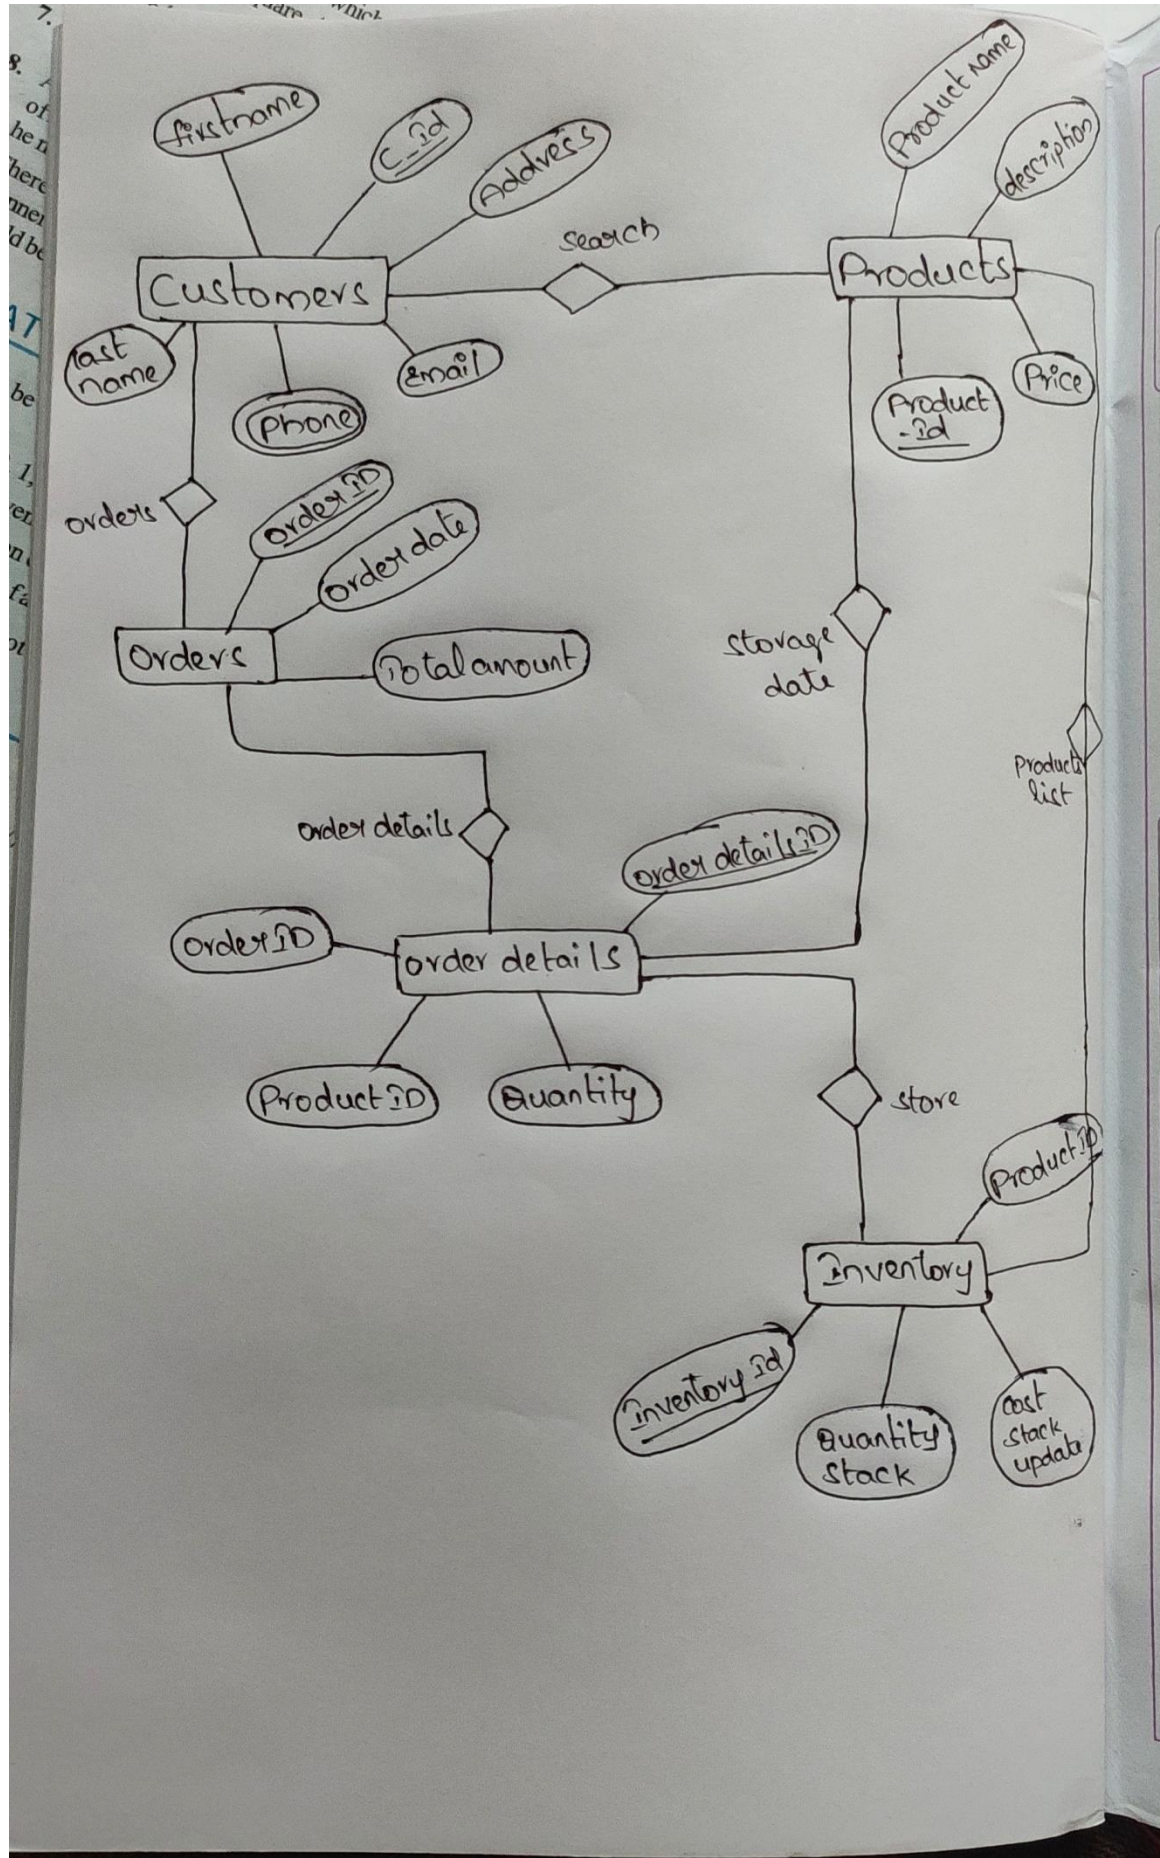 7.
which
8.
of
AT
be
1,
firstname
C_Id
Address
Product name
description
search
Customers
Products
last
name
Phone
Email
Product
-Id
Price
orders
order ID
order date
orders
Total amount
storage
date
Products
list
order details
order details ID
order ID
order details
Product ID
Quantity
store
Product ID
Inventory
Inventory Id
Quantity
stack
cost
stack
update